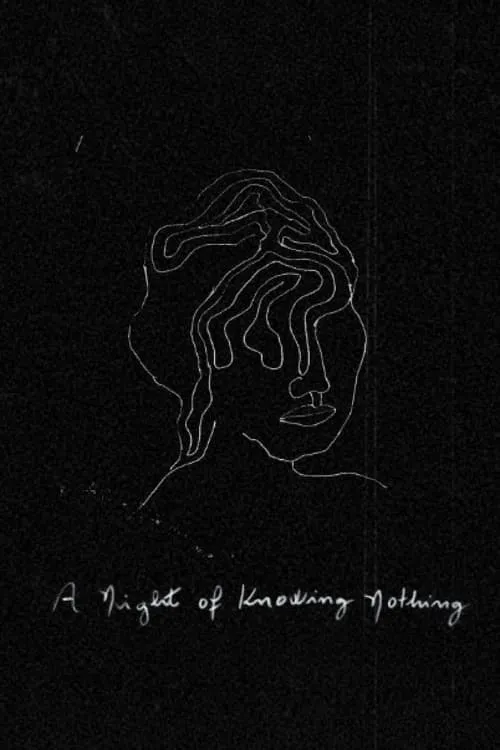 A Night of Knowing Nothing